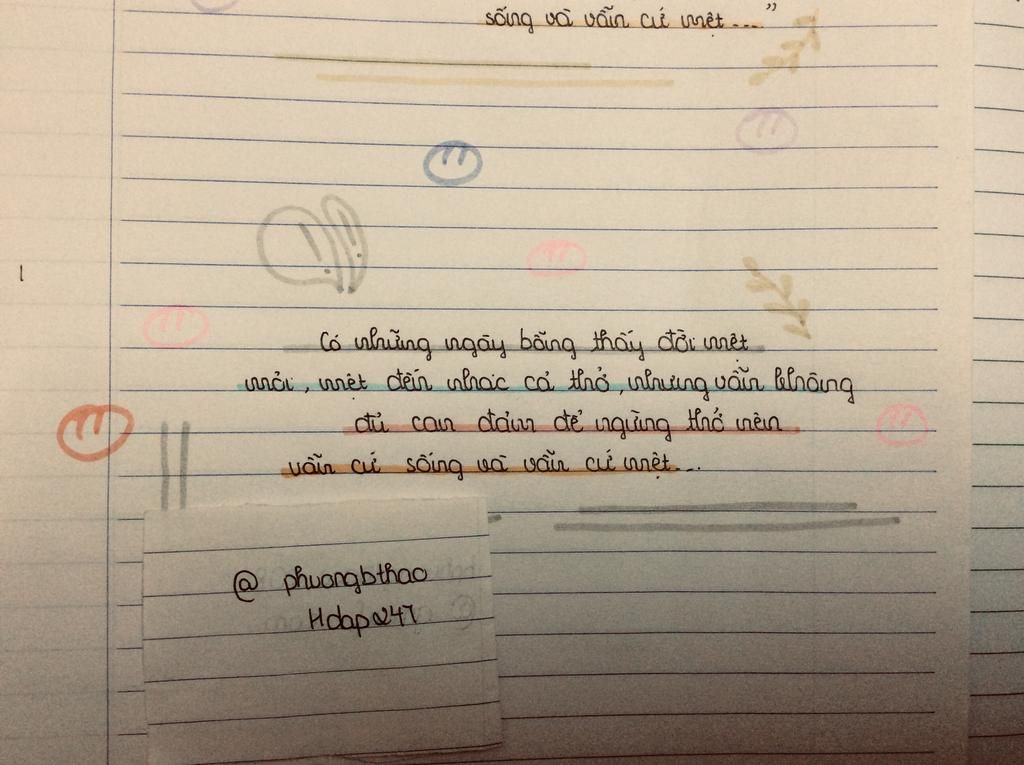 sống và vẫn cứ mệt..."
Có những ngày bỗng thấy đời mệt
mỏi, mệt đến nhác cả thở, nhưng vẫn không
đủ can đảm để ngừng thở nên
vẫn cứ sống và vẫn cứ mệt...
@ phuongbthao
Hdap247